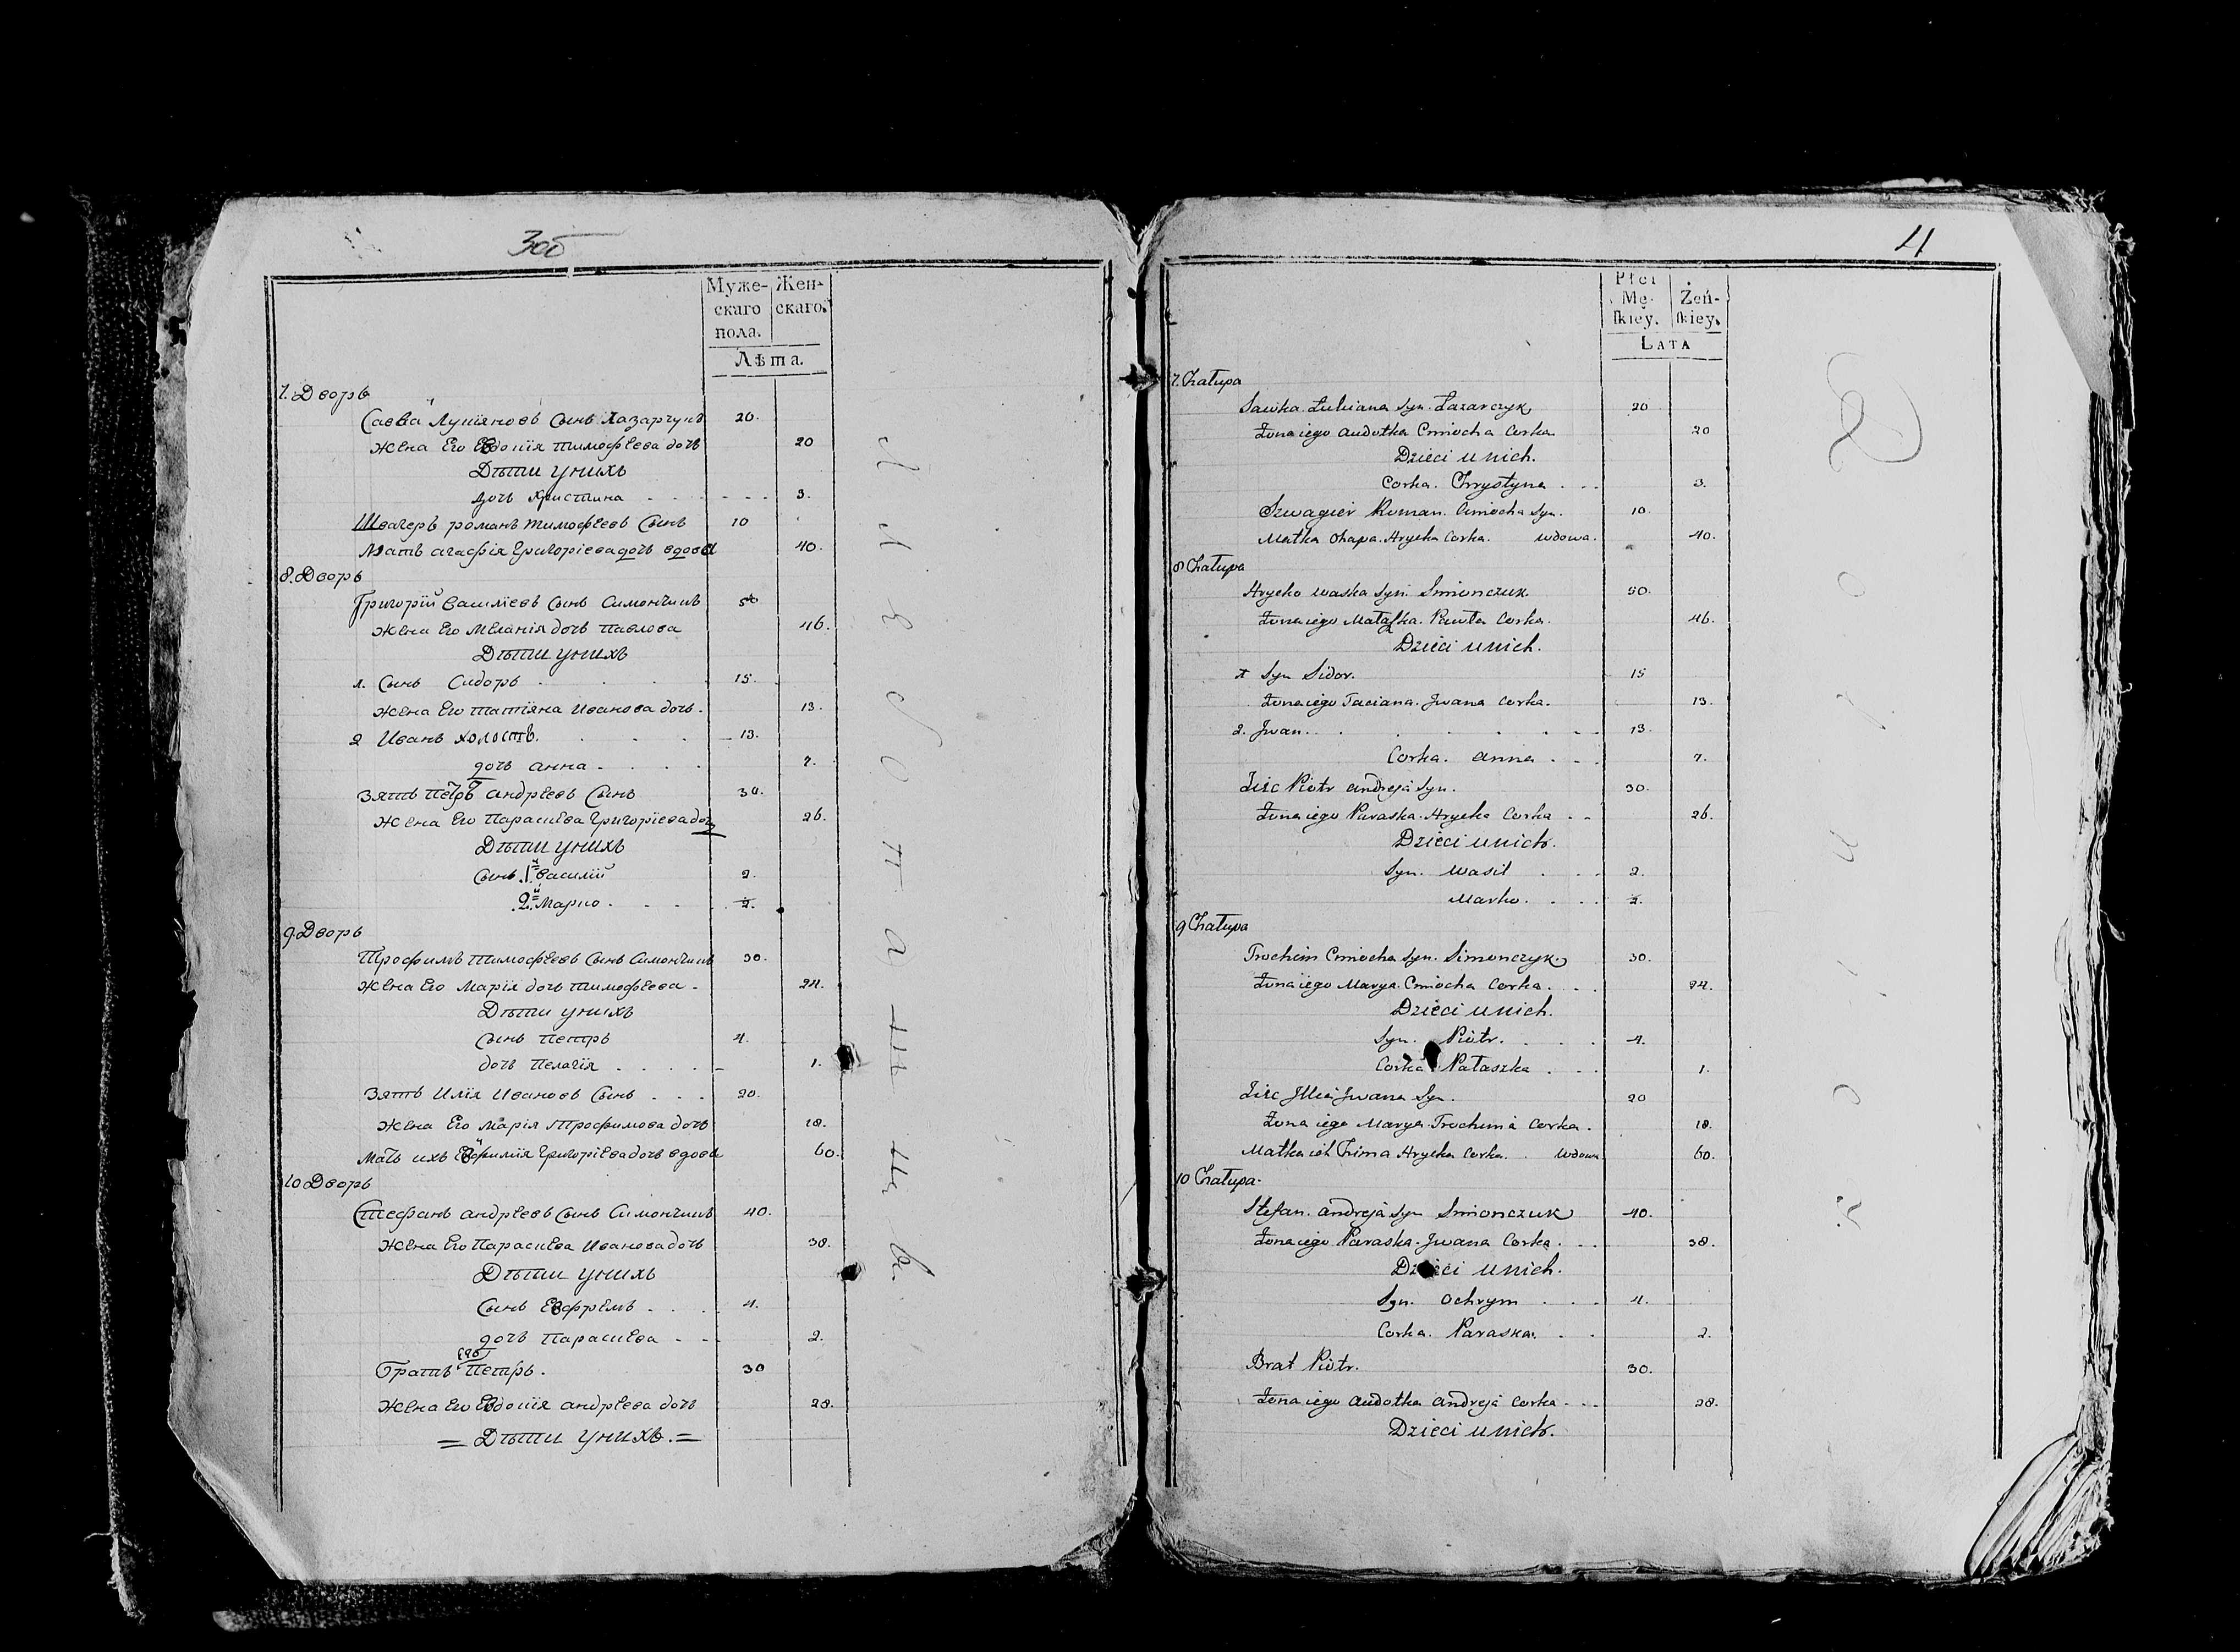 3об
Муже- Жен-
скаго скаго.
пола.
Лѣта.
7. Дворъ
Савва Лукіяновъ Сынъ Лазарчукъ 20.
жена Его Евдокія тимофѣева дочь 20
Дѣти унихъ
дочь Христина 3.
Швагеръ романъ тимофѣевъ Сынъ 10
Мать агафія Григоріева дочь вдова 40.
8. Дворъ
Григорій Василіевъ Сынъ Симончикъ 50
жена Его Меланія дочь павлова 46.
Дѣти унихъ
1. Сынъ Сидоръ 15.
жена Его татіяна Иванова дочь. 13.
2 Иванъ холостъ. 13.
дочь анна 7.
зять петръ андрѣевъ Сынъ 30.
жена Его Параскева Григоріева дочь 26.
Дѣти унихъ
Сынъ 1й Василій 2.
2й Марко 2.
9. Дворъ
Трофимъ тимофѣевъ Сынъ Симончикъ 30.
жена Его Марія дочь тимофѣева 24.
Дѣти унихъ
Сынъ петръ 4.
дочь пелагія 1.
зять Илія Ивановъ Сынъ 20.
жена Его Марія Трофимова дочь 18.
Мать ихъ Евфимія Григоріева дочь вдова 60.
10 Дворъ
Стефанъ андрѣевъ Сынъ Симончикъ 40.
жена Его Параскева Иванова дочь 38.
Дѣти унихъ
Сынъ Евфремъ 4.
дочь параскева 2.
Братъ петръ. 30
жена Его Евдокія андрѣева дочь 28.
= Дѣти унихъ. =
4
Płci
Mę- Żeń-
skiey. skiey.
LATA
7. Chałupa
Sawka Łukiana syn. Łazarczyk 20
Żona iego audotka Cmiocha Corka 20
Dzieci u nich.
Corka. Chrystyna 3.
Szwagier Roman. Cimocha syn. 10.
Matka Ohapa. Hryćka Corka. wdowa. 40.
8 Chałupa
Hryćko waska syn. Simonczuk 50.
Żona iego Małaszka. Pawła Corka. 46.
Dzieci u nich.
1 Syn Sidor. 15
Żona iego Taciana. Jwana Corka. 13.
2. Jwan. 13.
Corka. anna 7.
Zięć Piotr andreja syn. 30.
Żona iego Paraska. Hryćka Corka 26.
Dzieci u nich.
Syn. wasil 2.
Marko. 2.
9 Chałupa
Trochim Cmiocha syn. Simonczyk. 30.
Żona iego Marya. Cmiocha Corka. 24.
Dzieci u nich.
Syn. Piotr. 4.
Corka Pałaszka 1.
Zięć Jllia Jwana syn. 20
Żona iego Marya Trochima Corka. 18.
Matka ich Chima Hryćka Corka. wdowa 60.
10 Chałupa.
Stefan. andreja syn Simonczuk 40.
Żona iego Paraska. Jwana Corka. 38.
Dzieci u nich.
Syn. ochrym 4.
Corka. Paraska. 2.
Brat Piotr. 30.
Żona iego audotka andreja Corka 28.
Dzieci u nich.